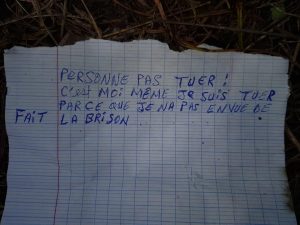 PERSONNE PAS TUER!
C'est MOI MÊME JE SUIS TUER
PARCE QUE JE NA PAS ENVUE DE
FAIT LA BRISON